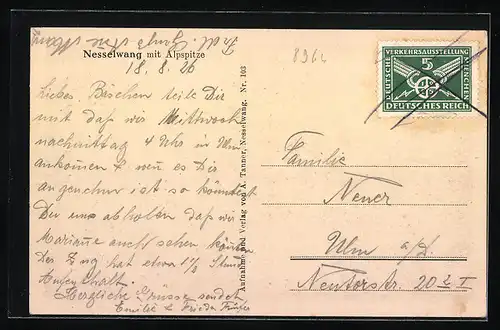 Nesselwang mit Alpspitze
18.8.26
Liebes Bäschen teile Dir
mit daß wir Mittwoch
nachmittag 4 Uhr in Ulm
ankommen & wen es Dir
angenehm ist so könntest
Du uns abholen daß wir
Mariane auch sehen können
Der Zug hat etwa 1½ Stund
Aufenthalt.
Herzliche Grüsse sendet
Emilie & Frieda
Aufnahme und Verlag von A. Tanner, Nesselwang. Nr. 103
8964
DEUTSCHE
VERKEHRSAUSSTELLUNG
MÜNCHEN
5
DEUTSCHES REICH
Familie
Ulm a/D
Neutorstr. 20 2 I